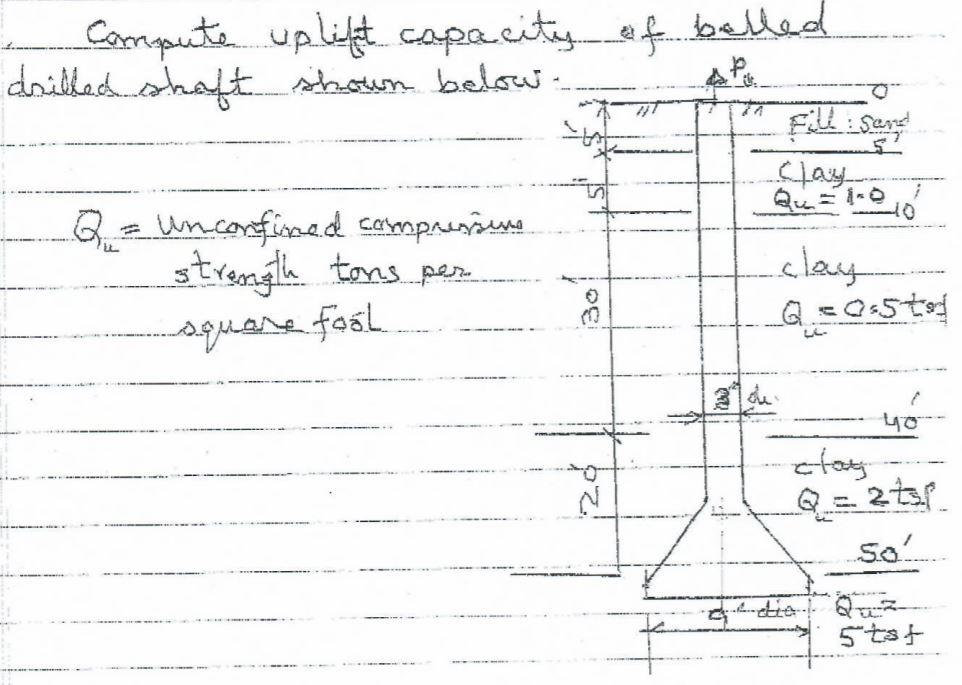 Compute uplift capacity of belled
drilled shaft shown below.
Pu
0
Fill: Sand
5'
5'
clay
Qu = 1.0
10'
5'
Qu = Unconfined compressive
strength tons per
square foot
clay
Qu = 0.5 tsf
30'
3' di.
40'
clay
Qu = 2 tsf
20'
50'
9' dia
Qu =
5 tsf